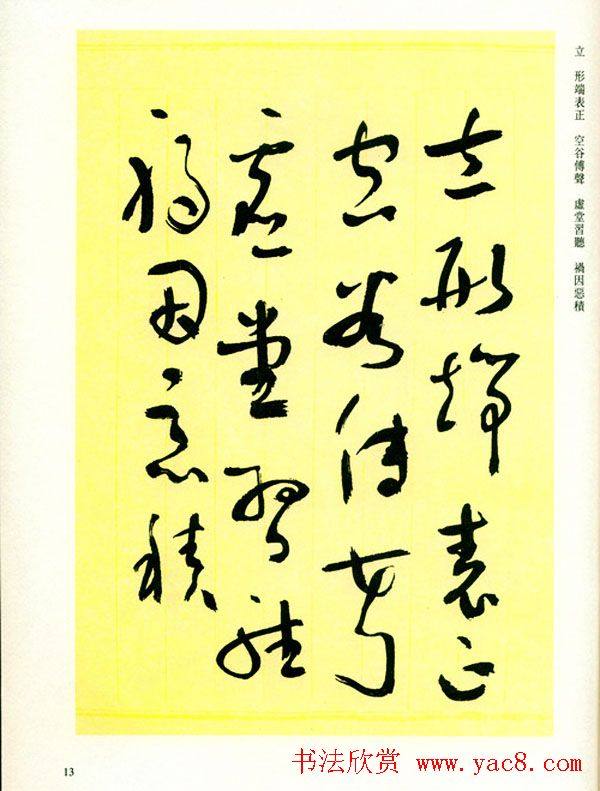 立 形端表正 空谷傅聲 虛堂習聽 禍因惡積
立形端表正
空谷傳聲
虛堂習聽
禍因惡積
13
书法欣赏 www.yac8.com